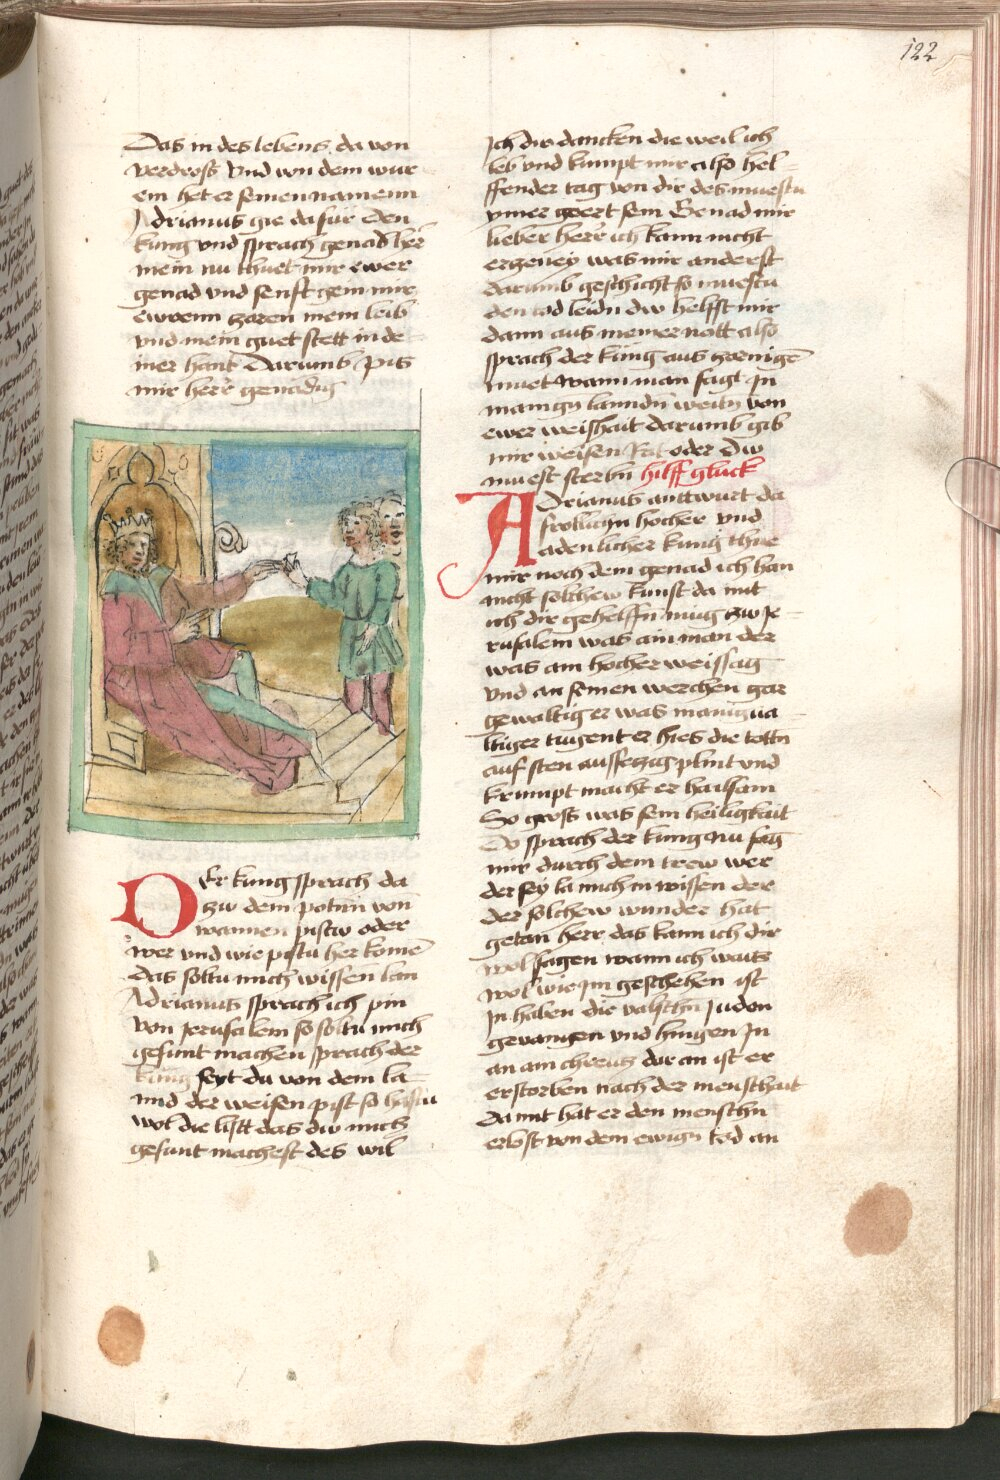 122
Das in des lebens da von
verdross Vnd von dem wur
em het er seinen namenn
Adrianus gie da fur den
kung vnd sprach genad her
mein nu thuet mir ewer
genad vnd senft gein mir
ewrenn zoren mein leib
vnd mein guet stett in de
iner hant Darumb pis
mir herr genadig
Der kung sprach da
zw dem potten von
wannen pistw oder
wer vnd wie pistu her komē
das soltu mich wissen lan
Adrianus sprach ich pin
von Jerusalem so soltu mich
gesunt machen sprach der
kung seyt du von dem la
nnd der weisen pist so hastu
wol die list das dw mich
gesunt machest des wil
ich dir dancken die weil ich
leb vnd kumpt mir also hel-
ffender tag von dir des muestu
ymer geert sein Genad mir
lieber herr ich kann nicht
erzeney was mir anderst
darumb geschicht so muestu
den tod leidn dw helfst mir
dann aus meiner nott also
sprach der kung aus zornigē
muet wann man sagt in
manign lanndn weitn von
ewer weishait darumb gib
mir weisen Rat oder dw
muest sterbn hilff gluck
Adrianus anttwurt da
frolichn hocher vnd
adenlicher kung thue
mir noch dem genad ich han
nicht solchew kunst da mit
ich dir gehelffn mug zw Je-
rusalem was ain man der
was ain hocher weissag
vnd an seinen werchen gar
gewaltig er was manigua-
ltiger tugent er hies die tottn
auf sten aussetzig plint vnd
krumpt macht er hailsam
So gross was sein heiligkait
Do sprach der kung nu sag
mir durch dein trew wer
der sey la mich in wissen der
der solchew wunder hat
getan herr das kann ich dir
wol sagen wann ich wais
wol wie im geschehen ist
In haben die valschn Juden
gevangen vnd hingen In
an ain chreutz dar an ist er
erstorben nach der menschait
da mit hat er den menschn
erlost von dem ewign tod an